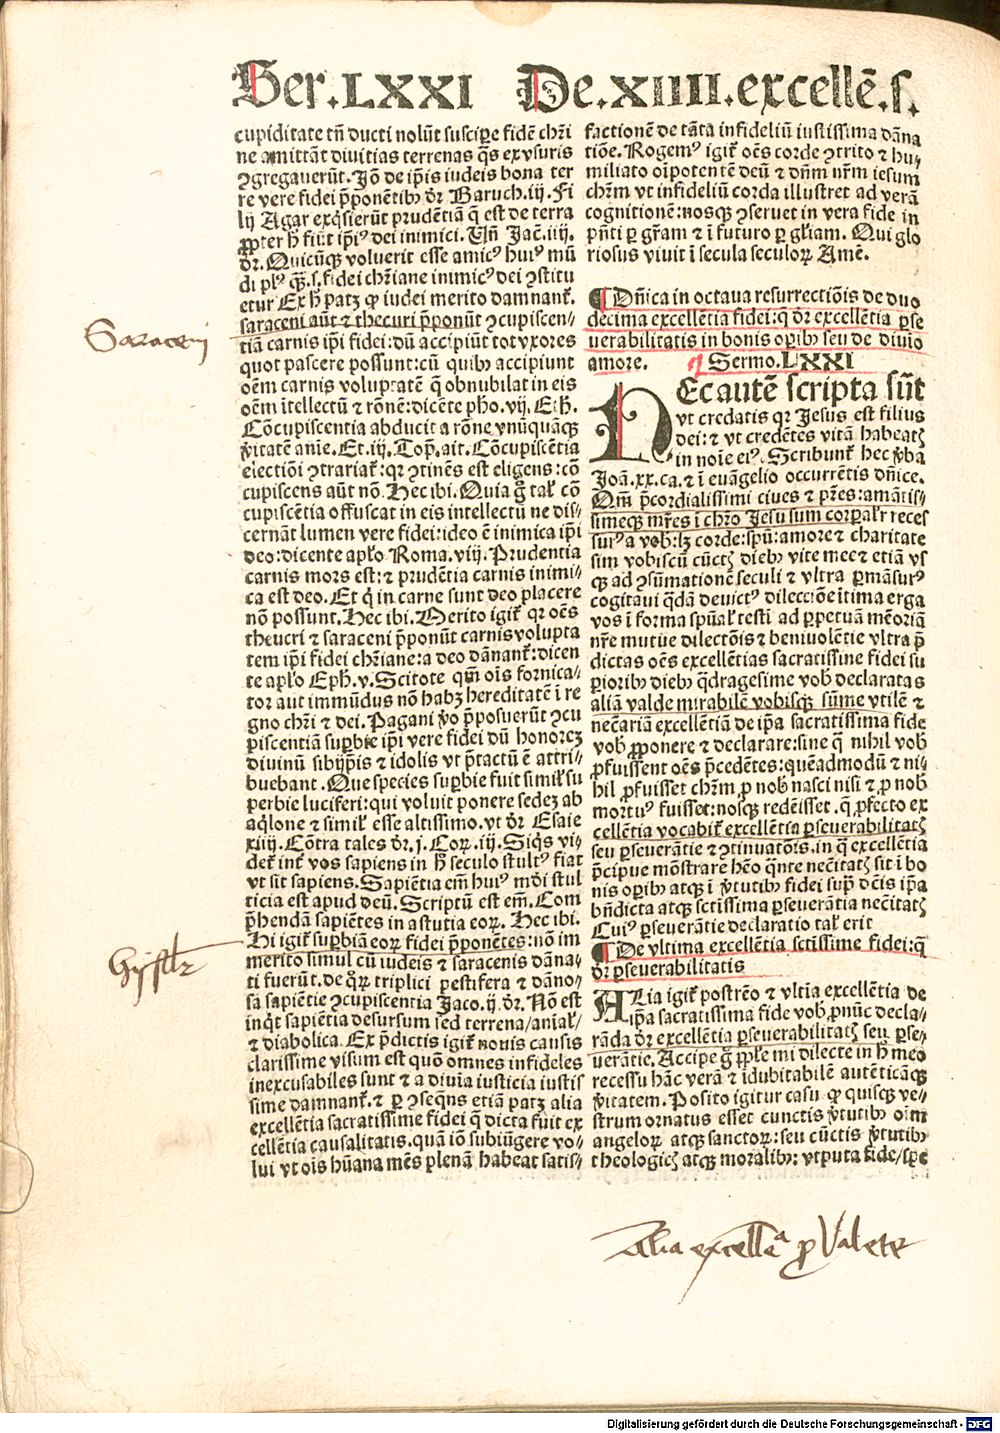 Ser.LXXI De.XIIII.excellē.s.
cupiditate tñ ducti nolūt suscipe fidē chr̄i
ne amittāt diuitias terrenas q̄s ex vsuris
ꝯgregauerūt. Jō de ip̄is iudeis bona ter
re vere fidei p̄ponētibꝫ dr̄ Baruch.iij. Fi
lij Agar exq̄sierūt prudētiā q̄ est de terra
ꝓpter h̄ fiūt ip̄iꝰ dei inimici. Uñ Jac̄.iiij.
dr̄. Quicūqꝫ voluerit esse amicꝰ huiꝰ mū
di plꝰ qꝫ̄.s.fidei chr̄iane inimicꝰ dei ꝯstitu
etur Ex h̄ patꝫ ꝙ iudei merito damnant̄.
saraceni aūt ⁊ thecuri p̄ponūt ꝯcupiscen⸗
tiā carnis ip̄i fidei: dū accipiūt tot vxores
quot pascere possunt: cū quibꝰ accipiunt
oēm carnis voluptatē q̄ obnubilat in eis
oēm ītellectū ⁊ rōnē: dicēte pho.vij. Eth̄.
Cōcupiscentia abducit a rōne vnūquāqꝫ
v̄itatē anīe. Et.iij. Top̄.ait. Cōcupiscētia
electiōi ꝯtrariat̄: qꝛ ꝯtinēs est eligens: cō
cupiscens aūt nō. Hec ibi. Quia g̊ tal̄ cō
cupiscētia offuscat in eis intellectū ne dis⸗
cernāt lumen vere fidei: ideo ē inimica ip̄i
deo: dicente apl̄o Roma.viij. Prudentia
carnis mors est: ⁊ prudētia carnis inimi⸗
ca est deo. Et q̇ in carne sunt deo placere
nō possunt. Hec ibi. Merito igit̄ qꝛ oēs
theucri ⁊ saraceni p̄ponūt carnis volupta
tem ip̄i fidei chr̄iane: a deo dānant̄: dicen
te apl̄o Eph̄.v. Scitote qm̄ oīs fornica⸗
tor aut immūdus nō habꝫ hereditatē ī re
gno chr̄i ⁊ dei. Pagani v̄o p̄posuerūt ꝯcu
piscentiā supbie ip̄i vere fidei dū honorē
diuinū sibijp̄is ⁊ idolis vt p̄tactū ē attri⸗
buebant. Que species supbie fuit simil̄ su
perbie luciferi: qui voluit ponere sedeꝫ ab
aq̇lone ⁊ simil̄ esse altissimo. vt dr̄ Esaie
xiiij. Cōtra tales dr̄.j. Coꝝ.iij. Siq̇s vi⸗
det̄ int̄ vos sapiens in h̄ seculo stultꝰ fiat
vt sit sapiens. Sapiētia em̄ huiꝰ mōi stul
ticia est apud deū. Scriptū est em̄. Com
p̄hendā sapiētes in astutia eoꝝ. Hec ibi.
Hi igit̄ supbiā eoꝝ fidei p̄ponētes: nō im
merito simul cū iudeis ⁊ saracenis dāna⸗
ti fuerūt. de q̊ꝝ triplici pestifera ⁊ dāno⸗
sa sapiētie ꝯcupiscentia Jaco.ij.dr̄. Nō est
inq̇t sapiētia desursum sed terrena/anīal̄/
⁊ diabolica. Ex p̄dictis igit̄ nouis causis
clarissime visum est quō omnes infideles
inexcusabiles sunt ⁊ a diuīa iusticia iustis
sime damnant̄. ⁊ ꝑ ꝯseqn̄s etiā patꝫ alia
excellētia sacratissime fidei q̄ dicta fuit ex
cellētia causalitatis. quā iō subiūgere vo⸗
lui vt oīs hūana mēs plenā habeat satis⸗
factionē de tāta infideliū iustissima dāna
tiōe. Rogemꝰ igit̄ oēs corde ꝯtrito ⁊ hu⸗
miliato oīpotentē deū ⁊ dn̄m nr̄m iesum
chr̄m vt infideliū corda illustret ad verā
cognitionē: nosqꝫ ꝯseruet in vera fide in
pn̄ti ꝑ gr̄am ⁊ ī futuro ꝑ gl̄iam. Qui glo
riosus viuit ī secula seculoꝝ Amē.
¶ Dn̄ica in octaua resurrectiōis de duo
decima excellētia fidei: q̄ dr̄ excellētia pse
uerabilitatis in bonis opibꝰ seu de diuīo
amore. ¶ Sermo.LXXI
HEc autē scripta sūt
vt credatis qꝛ Jesus est filius
dei: ⁊ vt credētes vitā habeatꝭ
in noīe eiꝰ. Scribunt̄ hec v̄ba
Joā.xx.ca.⁊ ī euāgelio occurrētis dn̄ice.
Qm̄ p̄cordialissimi ciues ⁊ pr̄es: amātis⸗
simeqꝫ mr̄es ī chr̄o Jesu sum corpal̄r reces
surꝰ a vob̄: lꝫ corde: spū: amore ⁊ charitate
sim vobiscū cūctꝭ diebꝰ vite mee ⁊ etiā vs
qꝫ ad ꝯsūmationē seculi ⁊ vltra pmāsurꝰ
cogitaui q̄dā deuictꝰ dilecciōe ītima erga
vos ī forma spūal̄ testi ad ppetuā mēoriā
nr̄e mutue dilectōis ⁊ beniuolētie vltra p̄
dictas oēs excellētias sacratissime fidei su
piorib̄ dieb̄ q̄dragesime vob̄ declaratas
aliā valde mirabilē vobisqꝫ sūme vtilē ⁊
necāriā excellētiā de ip̄a sacratissima fide
vob̄ ꝓponere ⁊ declarare: sine q̄ nihil vob̄
ꝓfuissent oēs p̄cedētes: quēadmodū ⁊ ni⸗
hil ꝓfuisset chr̄m ꝓ nob̄ nasci nisi ⁊ ꝓ nob̄
mortuꝰ fuisset: nosqꝫ redēisset. q̄ ꝓfecto ex
cellētia vocabit̄ excellētia pseuerabilitatꝭ
seu pseuerātie ⁊ ꝯtinuatōis. in q̄ excellētia
p̄cipue mōstrare hēo q̄nte necītatꝭ sit ī bo
nis opibꝰ atqꝫ ī v̄tutibꝰ fidei supͣ dc̄is ip̄a
bn̄dicta atqꝫ sctīssima pseuerātia necītatꝭ
Cuiꝰ pseuerātie declaratio tal̄ erit
¶ De vltima excellētia sctīssime fidei: q̄
dr̄ pseuerabilitatis
ALia igit̄ postrēo ⁊ vltīa excellētia de
ip̄a sacratissima fide vob̄ ꝓnūc decla⸗
rāda dr̄ excellētia pseuerabilitatꝭ seu pse⸗
uerātie. Accipe g̊ pple mi dilecte in h̄ meo
recessu hāc verā ⁊ īdubitabilē autēticāqꝫ
v̄itatem. Posito igitur casu ꝙ quisqꝫ ve⸗
strum ornatus esset cunctis v̄tutibꝰ oīm
angeloꝝ atqꝫ sanctoꝝ: seu cūctis v̄tutibꝰ
theologicꝭ atqꝫ moralibꝰ: vtputa fide/spe
Saraceni
alia excell̄a ꝓ Valete